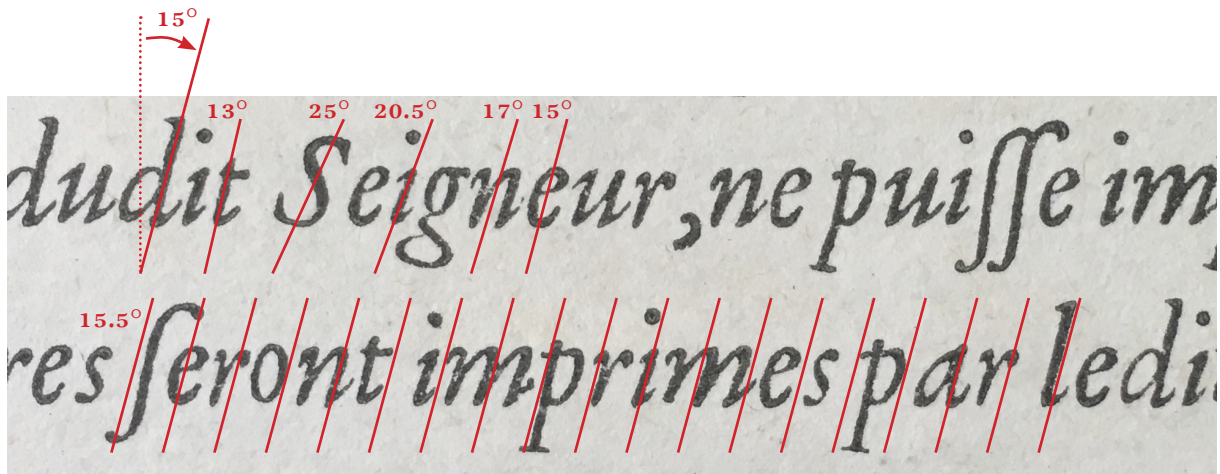 15°
13° 25° 20.5° 17° 15°
dudit Seigneur, ne puiſſe im
15.5°
res ſeront imprimes par ledit